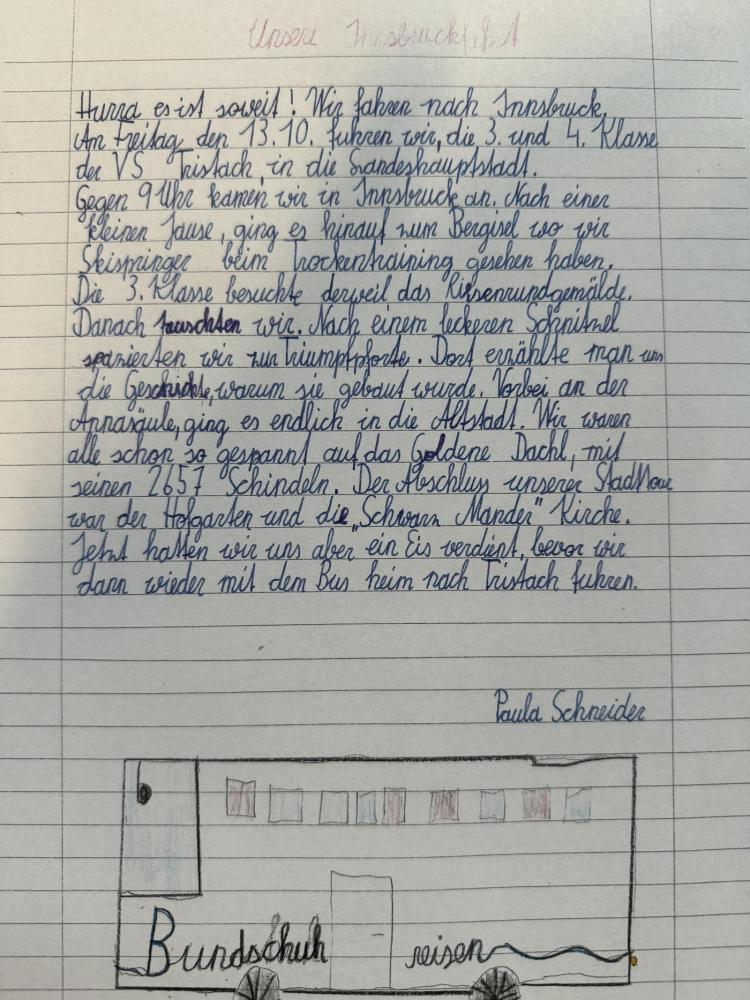 Unsere Innsbruckfahrt
Hurra es ist soweit! Wir fahren nach Innsbruck.
Am Freitag, den 13.10. fuhren wir, die 3. und 4. Klasse
der VS Tristach, in die Landeshauptstadt.
Gegen 9 Uhr kamen wir in Innsbruck an. Nach einer
kleinen Jause, ging es hinauf zum Bergisel wo wir
Skispringer beim Trockentraining gesehen haben.
Die 3. Klasse besuchte derweil das Riesenrundgemälde.
Danach tauschten wir. Nach einem leckeren Schnitzel
spazierten wir zur Triumpfpforte. Dort erzählte man uns
die Geschichte, warum sie gebaut wurde. Vorbei an der
Annasäule, ging es endlich in die Altstadt. Wir waren
alle schon so gespannt auf das Goldene Dachl, mit
seinen 2657 Schindeln. Der Abschluss unserer Stadttour
war der Hofgarten und die „Schwarz Mander" Kirche.
Jetzt hatten wir uns aber ein Eis verdient, bevor wir
dann wieder mit dem Bus heim nach Tristach fuhren.
Paula Schneider
Bundschuh reisen